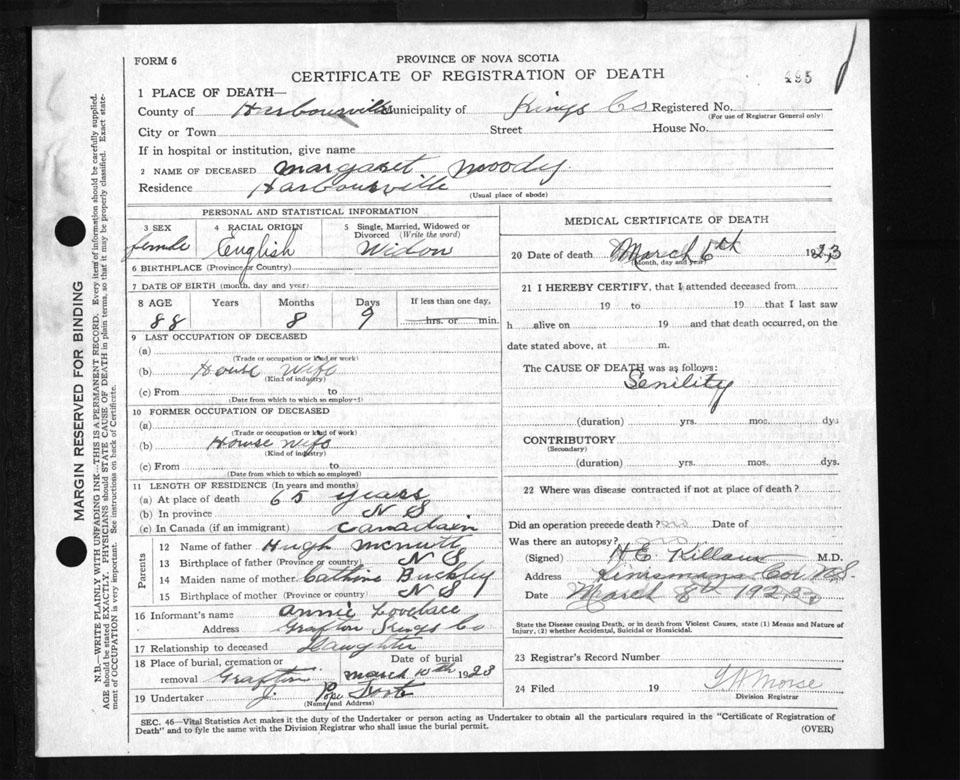 FORM 6
PROVINCE OF NOVA SCOTIA
CERTIFICATE OF REGISTRATION OF DEATH
495
1 PLACE OF DEATH—
County of Harbourville Municipality of Kings Co Registered No.
(For use of Registrar General only)
City or Town Street House No.
If in hospital or institution, give name
2 NAME OF DECEASED Margaret Moody
Residence Harbourville
(Usual place of abode)
PERSONAL AND STATISTICAL INFORMATION
3 SEX 4 RACIAL ORIGIN 5 Single, Married, Widowed or Divorced (Write the word)
female English Widow
6 BIRTHPLACE (Province or Country)
7 DATE OF BIRTH (month, day and year)
8 AGE Years Months Days If less than one day,
88 8 9 hrs. or min.
9 LAST OCCUPATION OF DECEASED
(a)
(Trade or occupation or kind or work)
(b) House Wife
(Kind of industry)
(c) From to
(Date from which to which so employed)
10 FORMER OCCUPATION OF DECEASED
(a)
(Trade or occupation or kind of work)
(b) House Wife
(Kind of industry)
(c) From to
(Date from which to which so employed)
11 LENGTH OF RESIDENCE (In years and months)
(a) At place of death 65 years
(b) In province N S
(c) In Canada (if an immigrant) Canadain
Parents
12 Name of father Hugh McNutt
13 Birthplace of father (Province or country) N S
14 Maiden name of mother Cathine Buckley
15 Birthplace of mother (Province or country) N S
16 Informant's name Annie Lovelace
Address Grafton Kings Co
17 Relationship to deceased Daughter
18 Place of burial, cremation or removal Grafton Date of burial March 10th 1923
19 Undertaker J.
(Name and Address)
MEDICAL CERTIFICATE OF DEATH
20 Date of death March 6th 1923
(Month, day and year)
21 I HEREBY CERTIFY, that I attended deceased from
19 to 19 that I last saw
h alive on 19 and that death occurred, on the
date stated above, at m.
The CAUSE OF DEATH was as follows:
Senility
(duration) yrs. mos. dys
CONTRIBUTORY
(Secondary)
(duration) yrs. mos. dys.
22 Where was disease contracted if not at place of death?
Did an operation precede death? no Date of
Was there an autopsy? no
(Signed) H E Killam M.D.
Address Kinsmans Cor N.S.
Date March 8th 1923
State the Disease causing Death, or in death from Violent Causes, state (1) Means and Nature of Injury, (2) whether Accidental, Suicidal or Homicidal.
23 Registrar's Record Number
24 Filed 19 Morse
Division Registrar
SEC. 46—Vital Statistics Act makes it the duty of the Undertaker or person acting as Undertaker to obtain all the particulars required in the "Certificate of Registration of
Death" and to fyle the same with the Division Registrar who shall issue the burial permit.
(OVER)
MARGIN RESERVED FOR BINDING
N.B.—WRITE PLAINLY WITH UNFADING INK—THIS IS A PERMANENT RECORD. Every item of information should be carefully supplied.
AGE should be stated EXACTLY. PHYSICIANS should STATE CAUSE OF DEATH in plain terms, so that it may be properly classified. Exact state-
ment of OCCUPATION is very important. See instructions on back of Certificate.